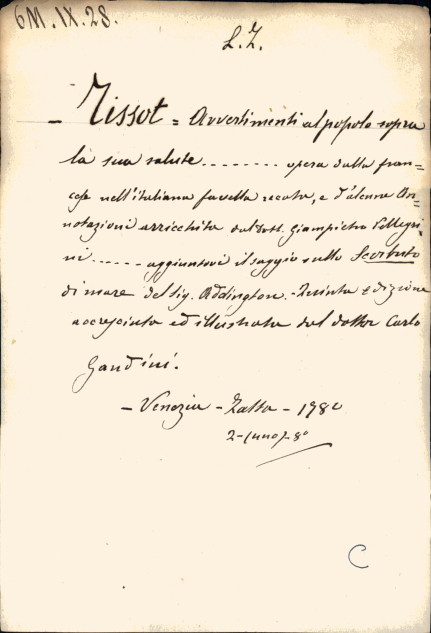 6M.IX.28.
L.Z.
- Tissot = Avvertimenti al popolo sopra
la sua salute......... opera dalla fran-
cese nell'italiana favella recata, e d'alcune An-
notazioni arricchita dal Dott. Giampietro Pellegri-
ni...... aggiuntovi il saggio sullo Scorbuto
di mare del Sig. Addington. - Quinta edizione
accresciuta ed illustrata dal dottor Carlo
Gandini.
- Venezia - Zatta - 1780
2-(uno)-8º
C